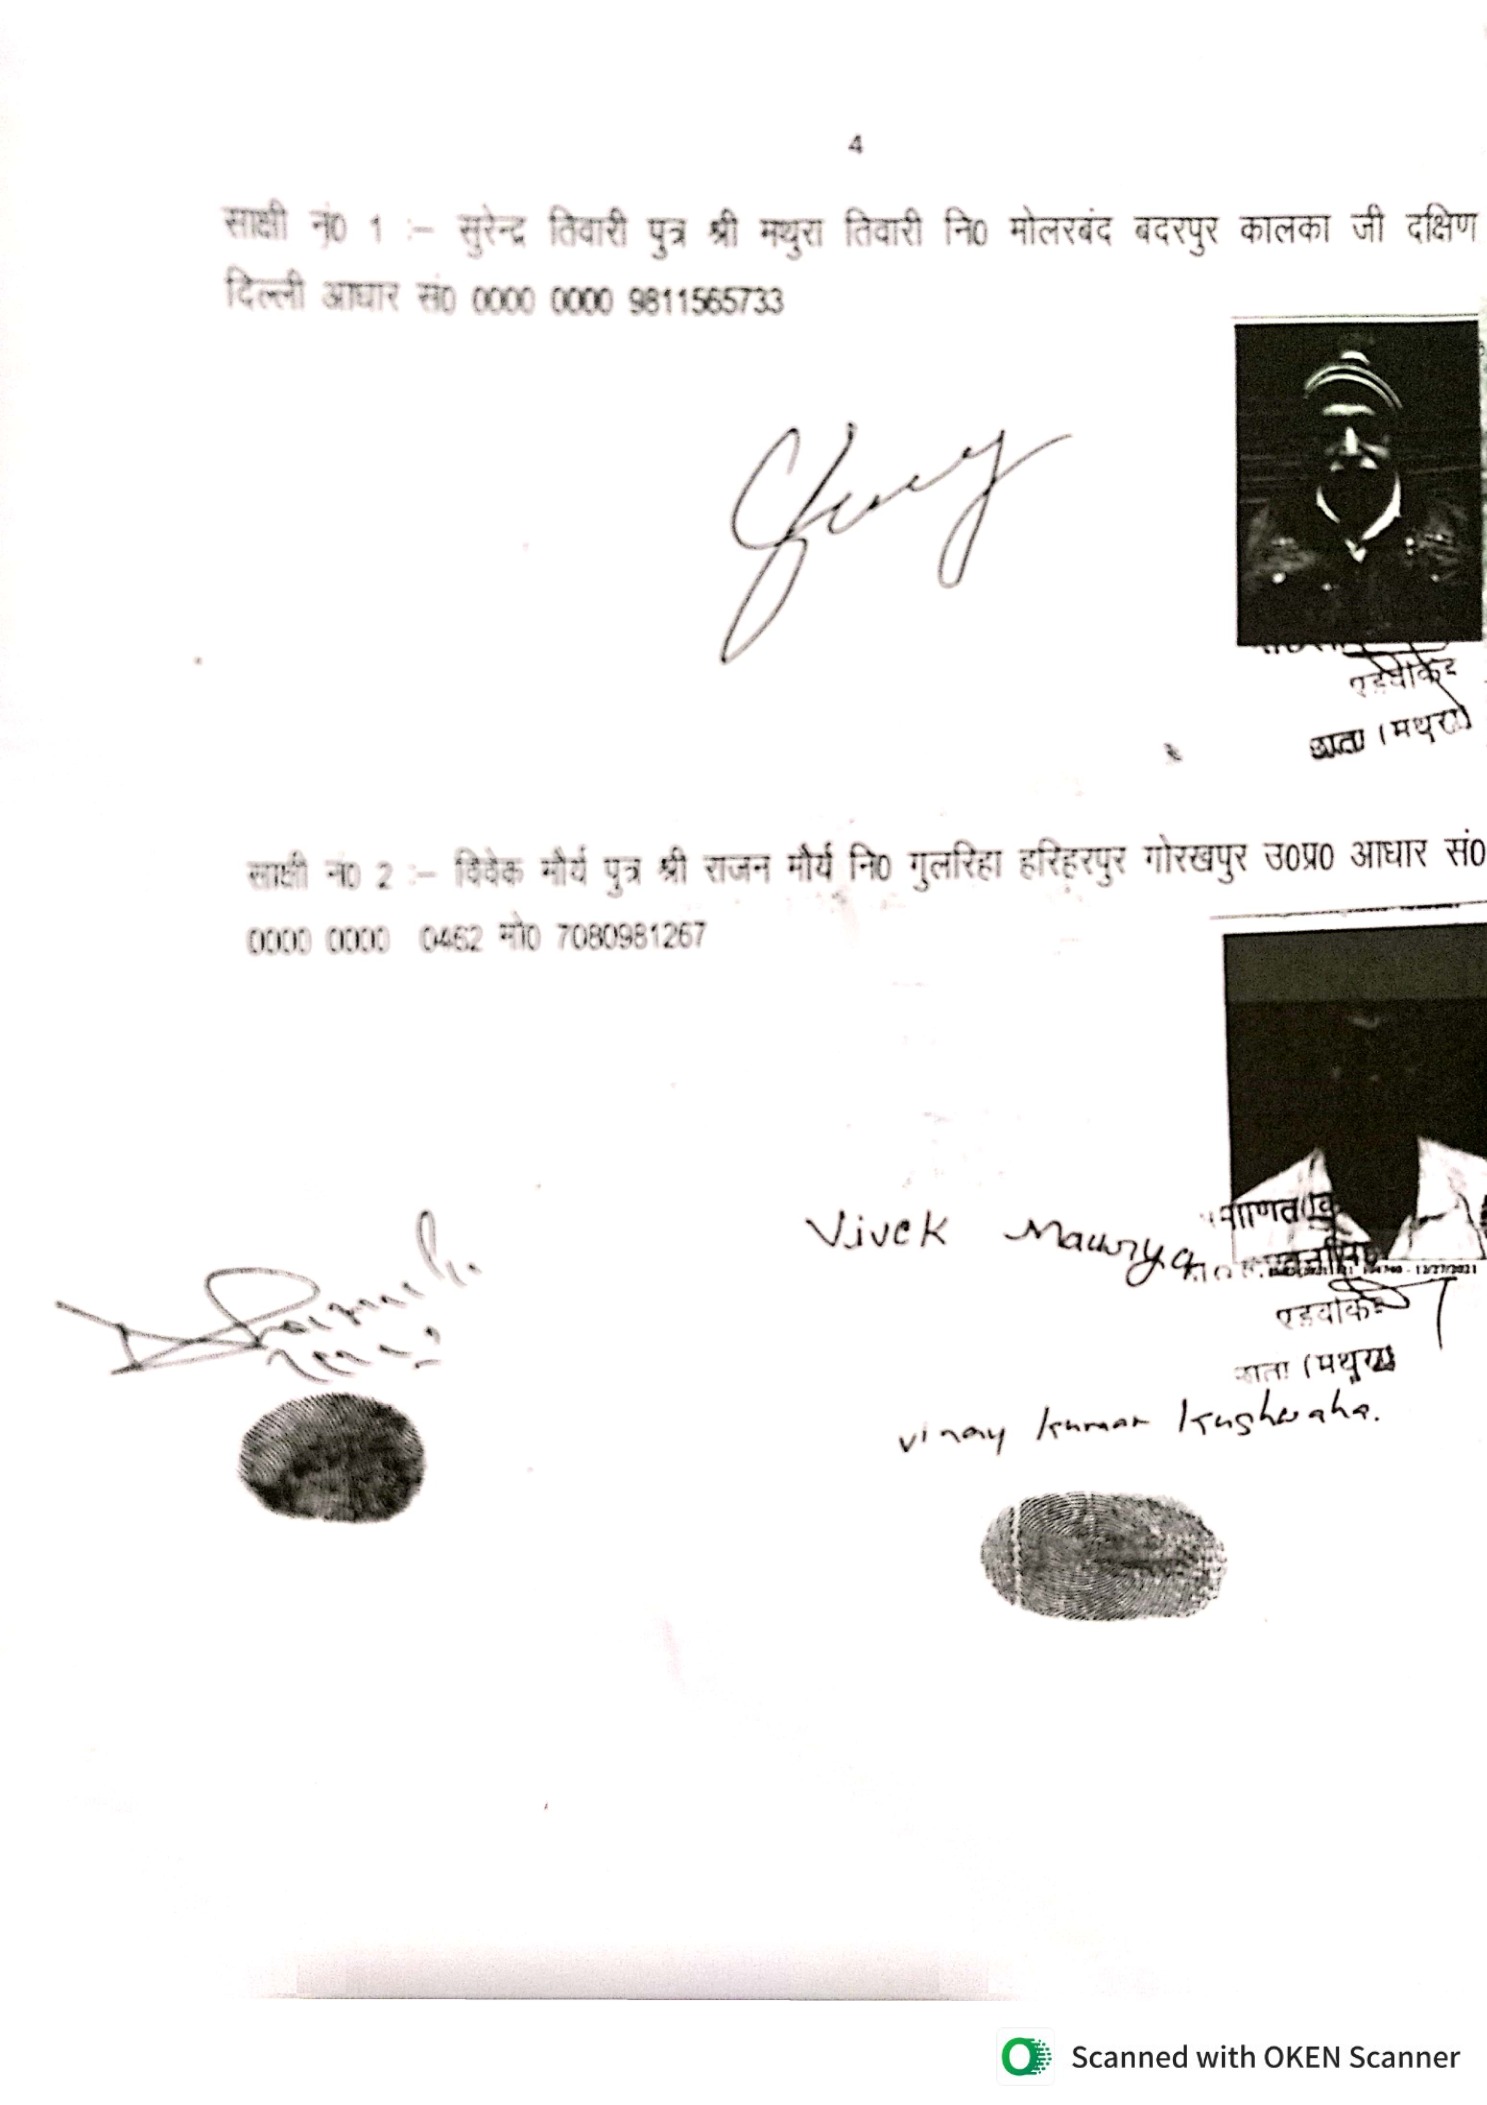 4
साक्षी नं0 1 :– सुरेन्द्र तिवारी पुत्र श्री मथुरा तिवारी नि0 मोलरबंद बदरपुर कालका जी दक्षिण
दिल्ली आधार सं0 0000 0000 9811565733
एडवोकेट
छाता (मथुरा)
साक्षी नं0 2 :– विवेक मौर्य पुत्र श्री राजन मौर्य नि0 गुलरिहा हरिहरपुर गोरखपुर उ0प्र0 आधार सं0
0000 0000 0462 मो0 7080981267
Vivek Maurya
12/27/2021
एडवोकेट
छाता (मथुरा)
vinay kumar kushwaha.
Scanned with OKEN Scanner